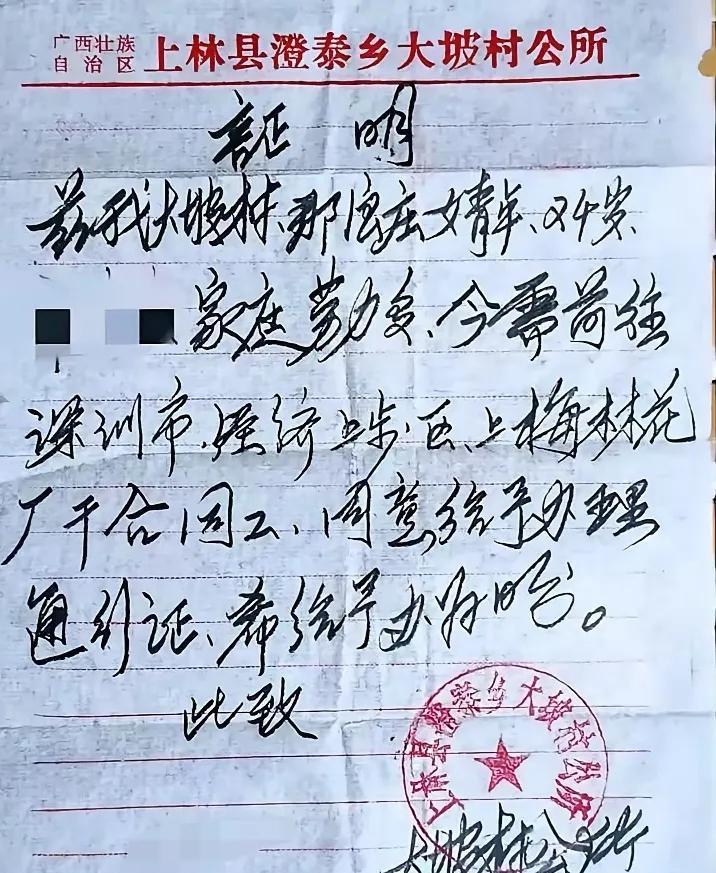 广西壮族
自治区
上林县澄泰乡大坡村公所
証 明
兹我大坡村、那良庄女青年、24岁、
家庭劳力多、今需前往
深圳市、经济上步区、上梅林花
厂干合同工、同意给予办理
通行证、希给予办好
此致
上林县澄泰乡大坡村公所
大坡村公所